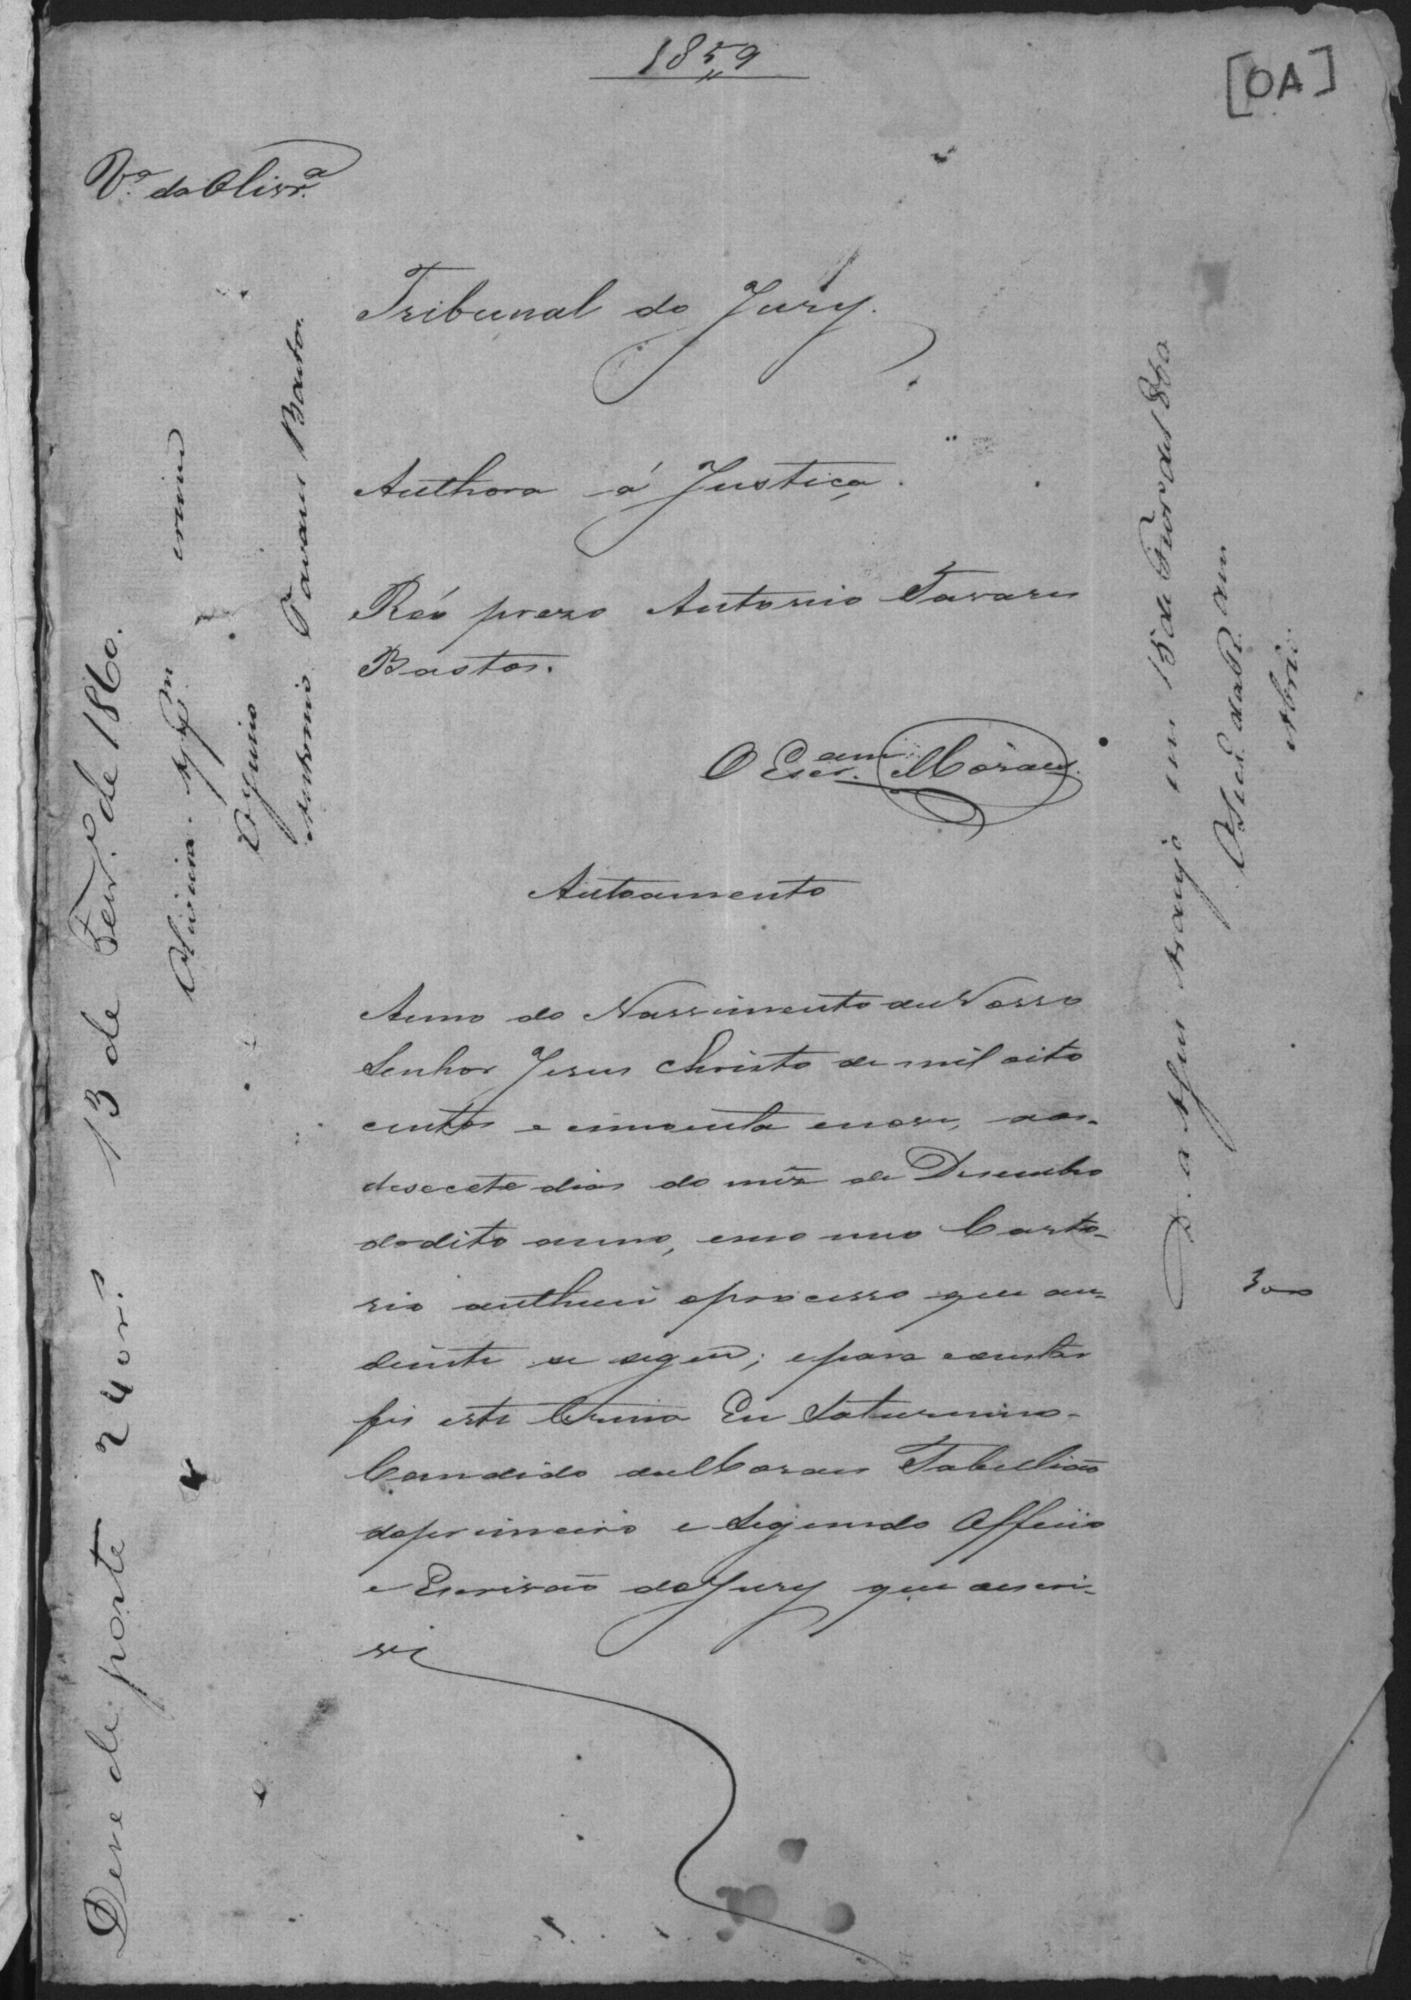 1859
[OA]
V.ª da Olivr.ª
Tribunal do Jury.
Authora á Justiça.
Réo prezo Antonio Tavares
Bastos.
O Escr.am Móraes
Autoamento
Anno do Nascimento de Nosso
Senhor Jesus Christo de mil oito
centos e cincoenta enove, aos
desecete dias do mêz de Desembro
dodito anno, em o meu Carto-
rio authuei oprocesso que an-
diante se segue; epara constar
fis este termo Eu Saturnino
Candido deMoraes Tabellião
doprimeiro e Segundo Officio
e Escrivão doJury que escri-
vi
Deve de porte 240 r.s 13 de Fever.º de 1860.
Oliveira
crime
Antonio Tavares Bastos
em 15 de Fevr.º de 1860
300